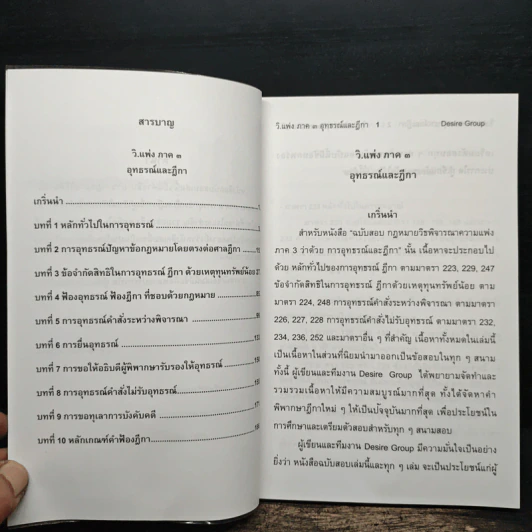 สารบาญ
วิ.แพ่ง ภาค ๓
อุทธรณ์และฎีกา
เกริ่นนำ
บทที่ 1 หลักทั่วไปในการอุทธรณ์
บทที่ 2 การอุทธรณ์ปัญหาข้อกฎหมายโดยตรงต่อศาลฎีกา
บทที่ 3 ข้อจำกัดสิทธิในการอุทธรณ์ ฎีกา ด้วยเหตุทุนทรัพย์น้อย
บทที่ 4 ฟ้องอุทธรณ์ ฟ้องฎีกา ที่ชอบด้วยกฎหมาย
บทที่ 5 การอุทธรณ์คำสั่งระหว่างพิจารณา
บทที่ 6 การยื่นอุทธรณ์
บทที่ 7 การขอให้อธิบดีผู้พิพากษารับรองให้อุทธรณ์
บทที่ 8 การอุทธรณ์คำสั่งไม่รับอุทธรณ์
บทที่ 9 การขอทุเลาการบังคับคดี
บทที่ 10 หลักเกณฑ์คำฟ้องฎีกา
วิ.แพ่ง ภาค ๓ อุทธรณ์และฎีกา 1 Desire Group
วิ.แพ่ง ภาค ๓
อุทธรณ์และฎีกา
เกริ่นนำ
สำหรับหนังสือ "ฉบับสอบ กฎหมายวิธีพิจารณาความแพ่ง
ภาค 3 ว่าด้วย การอุทธรณ์และฎีกา" นั้น เนื้อหาจะประกอบไป
ด้วย หลักทั่วไปของการอุทธรณ์ ฎีกา ตามมาตรา 223, 229, 247
ข้อจำกัดสิทธิในการอุทธรณ์ ฎีกาด้วยเหตุทุนทรัพย์น้อย ตาม
มาตรา 224, 248 การอุทธรณ์คำสั่งระหว่างพิจารณา ตามมาตรา
226, 227, 228 การอุทธรณ์คำสั่งไม่รับอุทธรณ์ ตามมาตรา 232,
234, 236, 252 และมาตราอื่น ๆ ที่สำคัญ เนื้อหาทั้งหมดในเล่มนี้
เป็นเนื้อหาในส่วนที่นิยมนำมาออกเป็นข้อสอบในทุก ๆ สนาม
ทั้งนี้ ผู้เขียนและทีมงาน Desire Group ได้พยายามจัดทำและ
รวบรวมเนื้อหาให้มีความสมบูรณ์มากที่สุด ทั้งได้จัดหาคำ
พิพากษาฎีกาใหม่ ๆ ให้เป็นปัจจุบันมากที่สุด เพื่อประโยชน์ใน
การศึกษาและเตรียมตัวสอบสำหรับทุก ๆ สนามสอบ
ผู้เขียนและทีมงาน Desire Group มีความมั่นใจเป็นอย่าง
ยิ่งว่า หนังสือฉบับสอบเล่มนี้และทุก ๆ เล่ม จะเป็นประโยชน์แก่ผู้